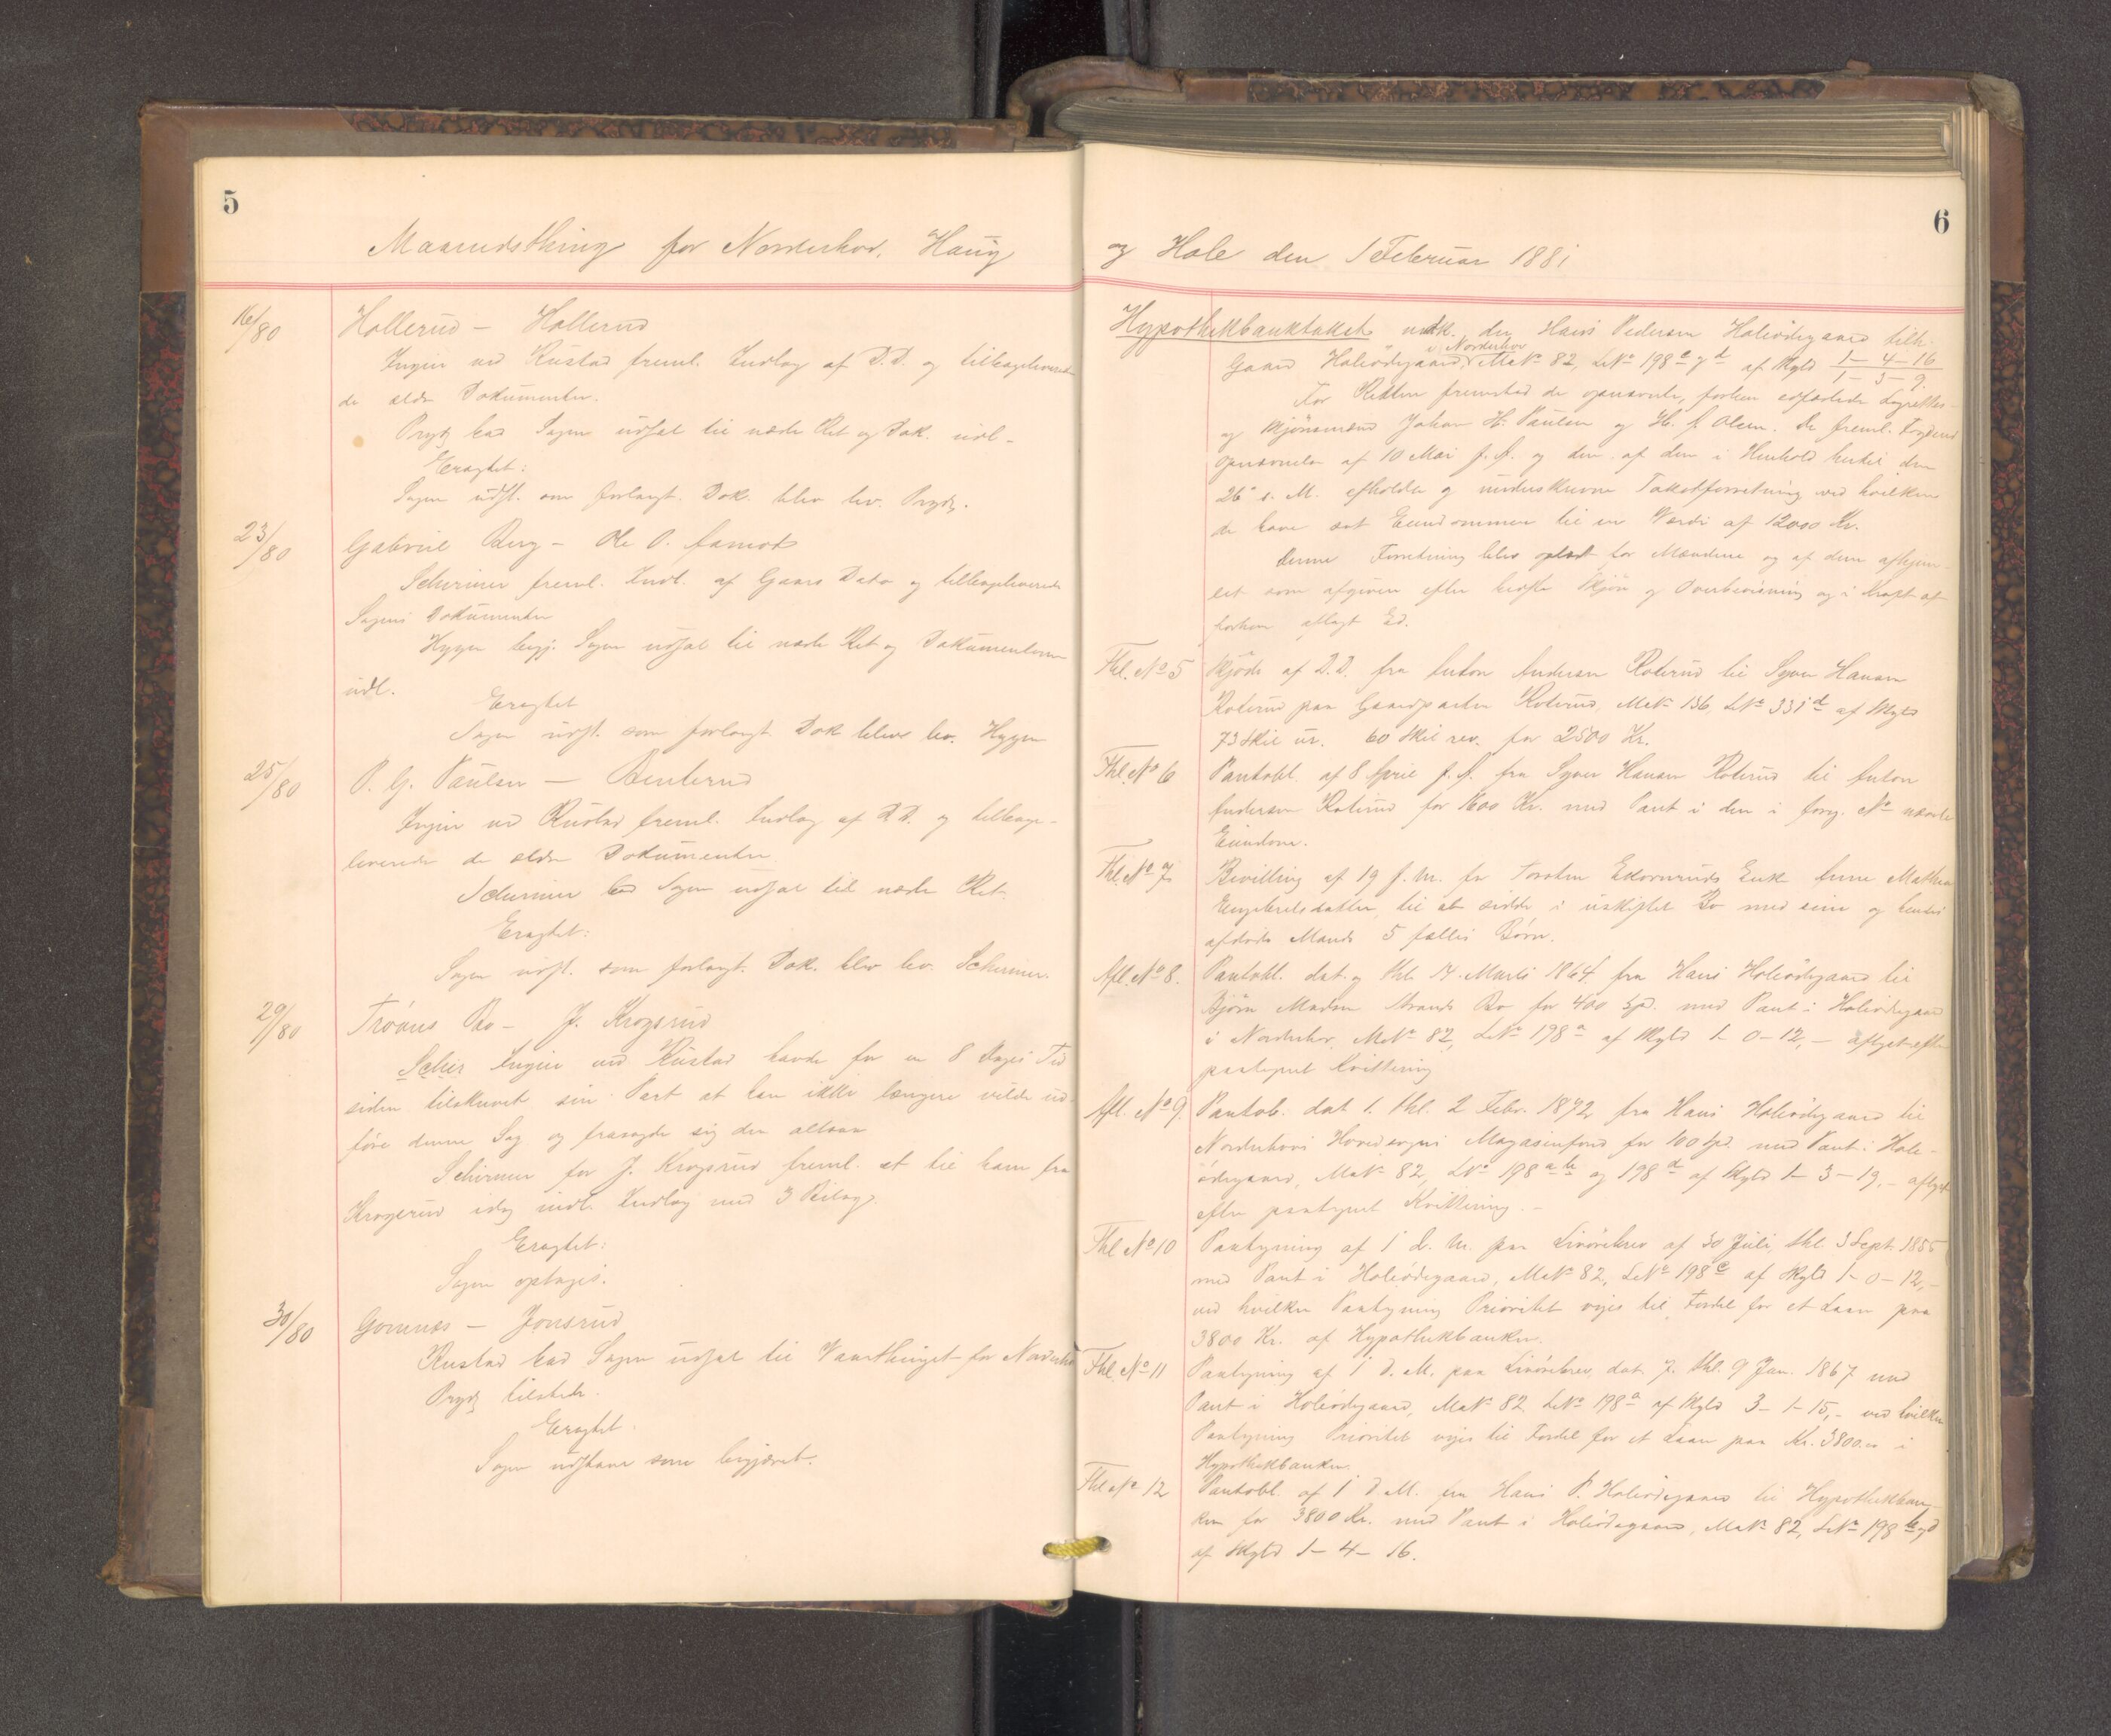 5
Maanedsthing for Norderhov, Haug
16/80
Hollerud – Hollerud
Ingier ved Rustad freml. Indlæg af D.D. og tilbageleverede
de ældre Dokumenter.
Prydz bad Sagen udsat til næste Ret og Dok. udl.
Eragtet:
Sagen udst. som forlangt. Dok. blev lev. Prydz.
23/80
Gabriel Berg – Ole O.
Schirmer freml. Indl. af Gaars Dato og tilbageleverede
Sagens Dokumenter
Hygen begj. Sagen udsat til næste Ret og Dokumenterne
udl.
Eragtet
Sagen udst. som forlangt. Dok. bleve lev. Hygen
25/80
P. G. Paulsen – Benterud
Ingier ved Rustad freml. Indlæg af D.D. og tilbage-
leverede de ældre Dokumenter
Schirmer bad Sagen udsat til næste Ret.
Eragtet:
Sagen udst. som forlangt. Dok. blev lev. Schirmer.
29/80
Bo – J. Krogsrud
Ingier ved Rustad havde for en 8 Dages Tid
siden tilskrevet sin Part at han ikke længere vilde ud-
føre denne Sag og frasagde sig den altsaa
Schirmer for J. Krogsrud freml. et til ham fra
Krogsrud idag indl. Indlæg med 3 Bilag.
Eragtet:
Sagen optages.
30/80
Gomnæs – Jonsrud
Rustad bad Sagen udsat til Vaarthinget for Norderhov
Prydz tilstede.
Eragtet.
Sagen udstaar som begjæret.
6
og Hole den 1 Februar 1881
Hypothekbanktakst den Hans Pedersen Holeødegaard tilh.
i Norderhov
Gaard Holeødegaard, Mat No 82, LNo 198 og d af Skyld 1–4–16
1–3–9.
For Retten fremstod de opnævnte, forhen edfæstede Lagrettes-
og Skjønsmænd Johan H. Paulsen og H. J. Olsen. De freml. Fogdens
Opnævnelse af 10 Mai f. A. og den af dem i Henhold hertil den
26 s. M. afholdte og underskrevne Takstforretning ved hvilken
de have sat Eiendommen til en Værdi af 12000 Kr.
Denne Forretning blev oplæst for Mændene og af dem afhjem-
let som afgiven efter bedste Skjøn og Overbevisning og i Kraft af
forhen aflagt Ed.
Thl. No 5
Skjøde af D.D. fra Anton Andersen Roterud til Syver Hansen
Roterud paa Gaardparten Roterud, Mat No 136 LNo 331 d af Skyld
73 Skil ur. 60 Skil rev. for 2500 Kr.
Thl. No 6
Pantobl. af 8 April f. A. fra Syver Hansen Roterud til Anton
Andersen Roterud for 1600 Kr. med Pant i den i forrg. No nævnte
Eiendom.
Thl. No 7
Bevilling af 19 f. M. for Torsten Ekornruds Enke Anne Mathea
Engebretsdatter til at sidde i uskiftet Bo med sine og hendes
afdøde Mands 5 fælles Børn.
Afl. No 8.
Pantobl. dat. og thl. 14. Marts 1864 fra Hans Holeødegaard til
Bjørn Madsen Strands Bo for 400 Spd. med Pant i Holeødegaard
i Norderhov, Mat No 82, LNo 198 a af Skyld 1–0–12, – aflyst efter
paategnet Kvittering
Afl. No 9.
Pantob. dat 1. thl. 2 Febr. 1872 fra Hans Holeødegaard til
Norderhovs Hovedsogns Magasinfond for 100 Spd. med Pant i Hole-
ødegaard, Mat No 82, LNo 198 a b og 198 d af Skyld 1–3–19, – aflyst
efter paategnet Kvittering. –
Thl No 10
Paategning af 1 d. M. paa Livørebrev af 30 Juli, thl. 3 Sept. 1855
med Pant i Holeødegaard, Mat No 82, LNo 198 af Skyld 1–0–12, –
ved hvilken Paategning Prioritet viges til Fordel for et Laan paa
3800 Kr. af Hypothekbanken.
Thl. No 11
Paategning af 1 d. M. paa Livørebrev dat. 7. thl. 9 Jan. 1867 med
Pant i Holeødegaard, Mat No 82 LNo 198 a af Skyld 3–1–15, – ved hvilken
Paategning Prioritet viges til Fordel for et Laan paa Kr. 3800.00 i
Hypothekbanken.
Thl No 12
Pantobl. af 1 d. M. fra Hans P. Holeødegaard til Hypothekban-
ken for 3800 Kr. med Pant i Holeødegaard, Mat No 82, LNo 198 b og d
af Skyld 1–4–16.